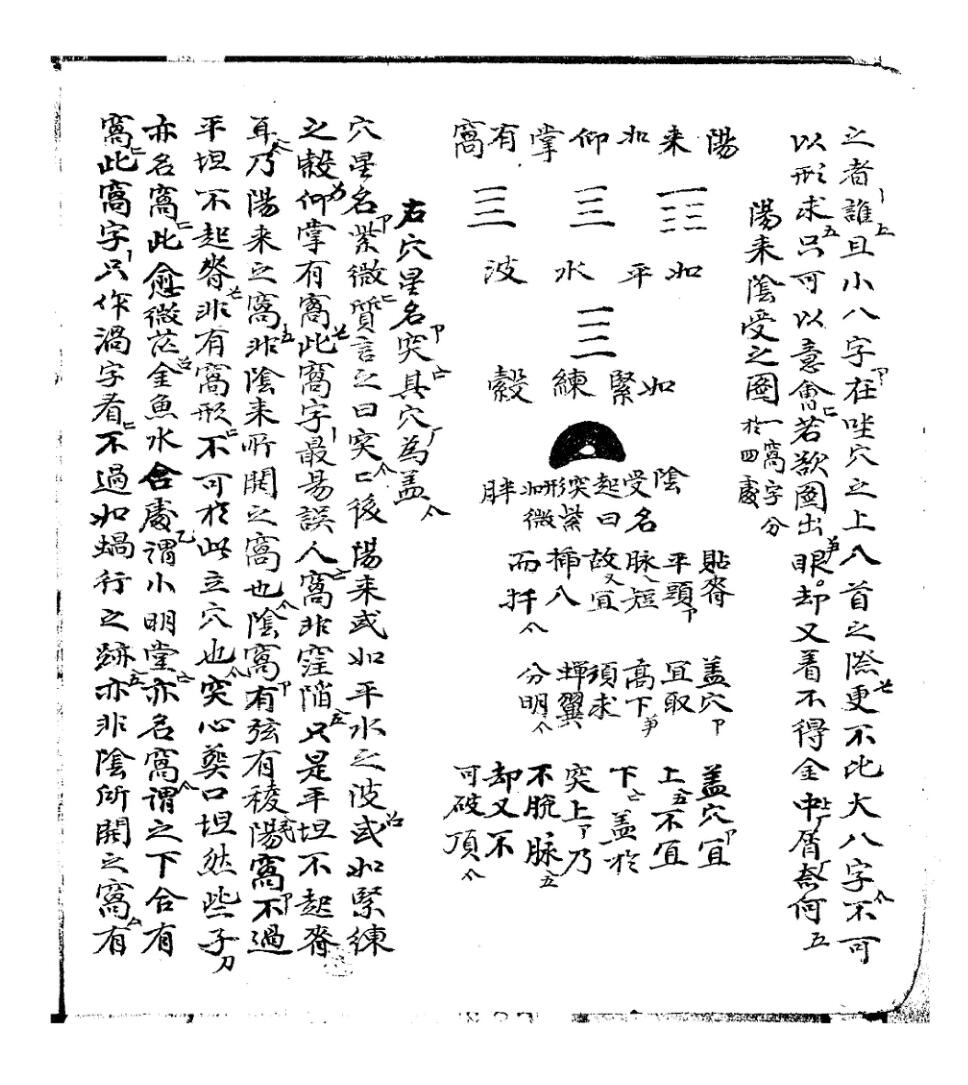 之者誰且小八字在坐穴之上八首之際更不比大八字不可
以形求只可以意會若欲圖出眼却又着不得金中屑奈何
陽来陰受之圖 一窩字分於四處
陽来如仰掌有窩
如平水波
如緊練縠
陰受起突形如胖
名曰紫微
貼脊平頭脉短故又宜揷八而扦
盖穴宜取高下須求蟬翼分明
盖穴宜上不宜下盖於突上乃不脫脉却又不可破頂
右穴星名突其穴為盖
穴星名紫微質言之曰突口後陽来或如平水之波或如緊練
之縠仰掌有窩此窩字最易誤人窩非窪陷只是平坦不起脊
耳乃陽来之窩非陰来所開之窩也陰窩有弦有稜陽窩不過
平坦不起脊非有窩形不可於此立穴也突心葬口坦然些子
亦名窩此愈微茫金魚水合處謂小明堂亦名窩謂之下合有
窩此窩字只作渦字看不過如蝸行之跡亦非陰所開之窩有